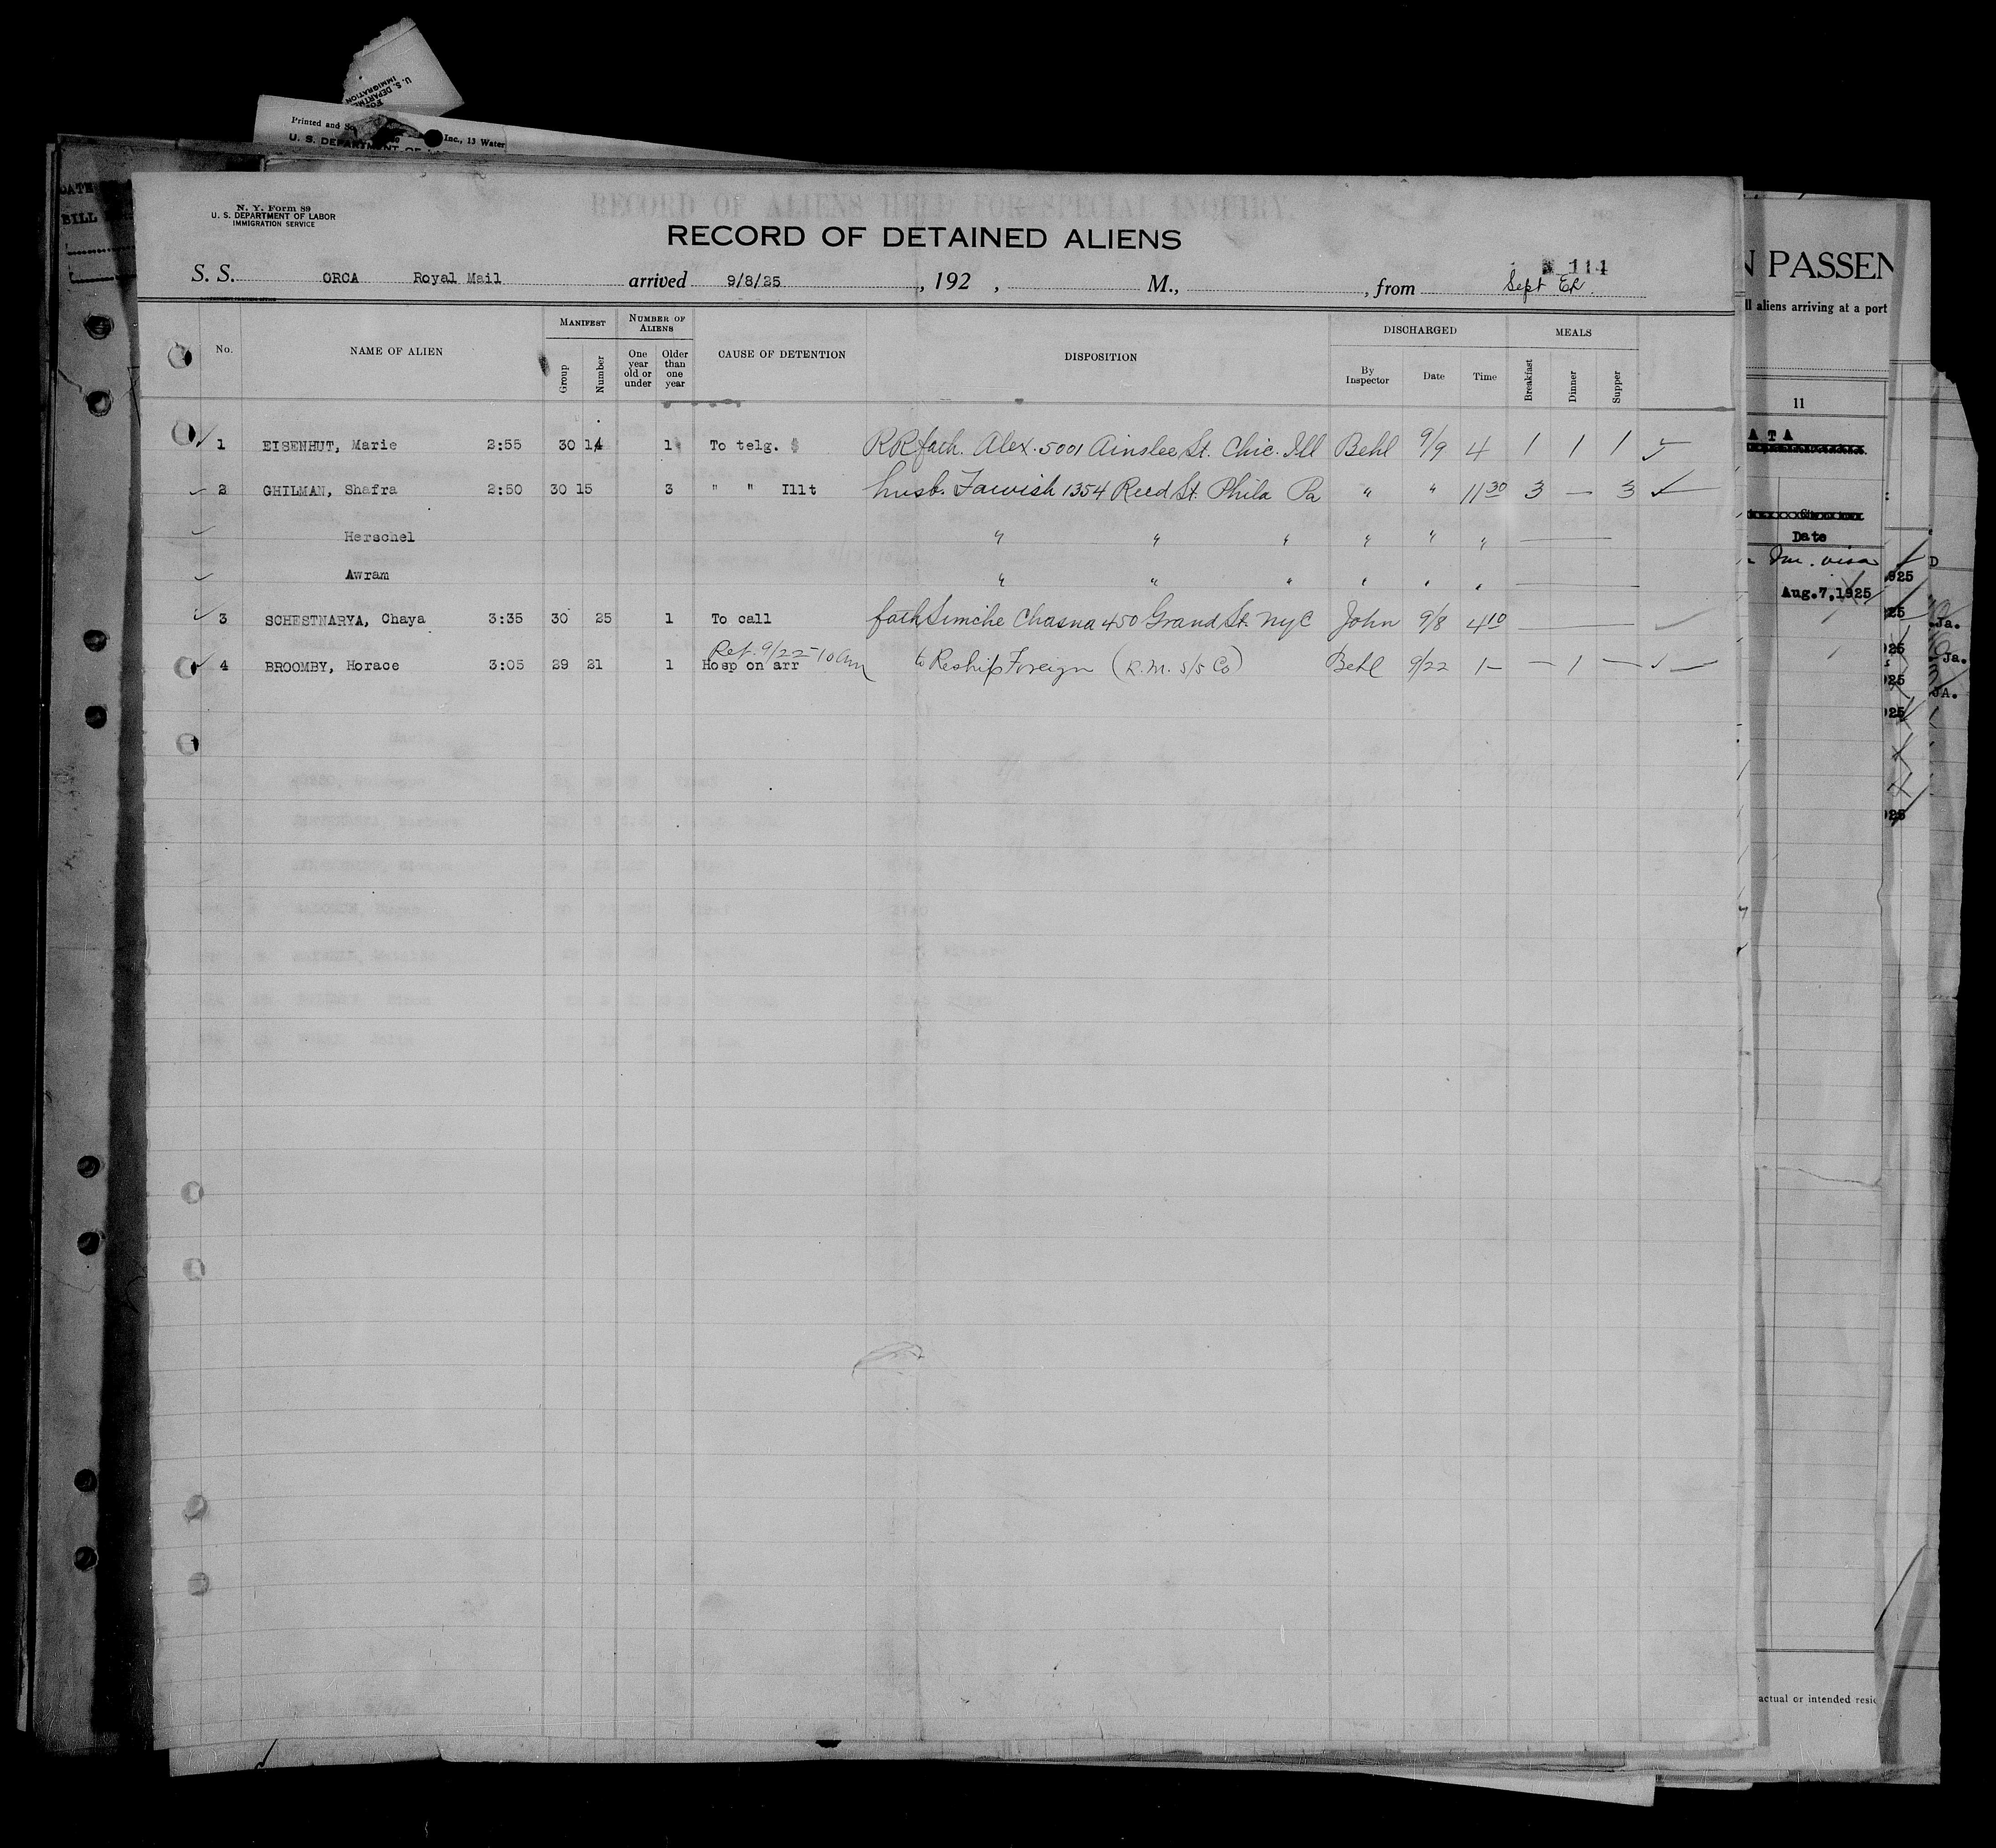 U. S. DEPARTMENT
IMMIGRATION
Printed and So
Inc., 13 Water
U. S. DEPARTMENT OF
DATE
BILL
N. Y. Form 89
U. S. DEPARTMENT OF LABOR
IMMIGRATION SERVICE
RECORD OF ALIENS HELD FOR SPECIAL INQUIRY.
RECORD OF DETAINED ALIENS
114
S. S. ORCA Royal Mail arrived 9/8/25, 192 , M., , from Sept
No. NAME OF ALIEN MANIFEST Group Number NUMBER OF ALIENS One year old or under Older than one year CAUSE OF DETENTION DISPOSITION DISCHARGED By Inspector Date Time MEALS Breakfast Dinner Supper
✓ 1 EISENHUT, Marie 2:55 30 14 1 To telg. RR fath. Alex. 5001 Ainslee St. Chic. Ill Behl 9/9 4 1 1 1 ✓
✓ 2 GHILMAN, Shafra 2:50 30 15 3 " " Illt husb. Tawish 1354 Reed St. Phila Pa " " 11 30 3 — 3 ✓
✓ Herschel " " " " " "
✓ Awram " " " " " "
✓ 3 SCHESTNARYA, Chaya 3:35 30 25 1 To call fath Simche Chasna 450 Grand St. NYC John 9/8 4 10 — ✓
Ret. 9/22 - 10 am
✓ 4 BROOMBY, Horace 3:05 29 21 1 Hosp on arr to Reship Foreign (R.M. S/S Co) Behl 9/22 1 - — 1 — ✓
N PASSEN
ll aliens arriving at a port
11
A T A
Date
Im. visa
Aug.7,1925
925
25
25
25
25
25
D
Ja.
Ja.
JA.
actual or intended resid